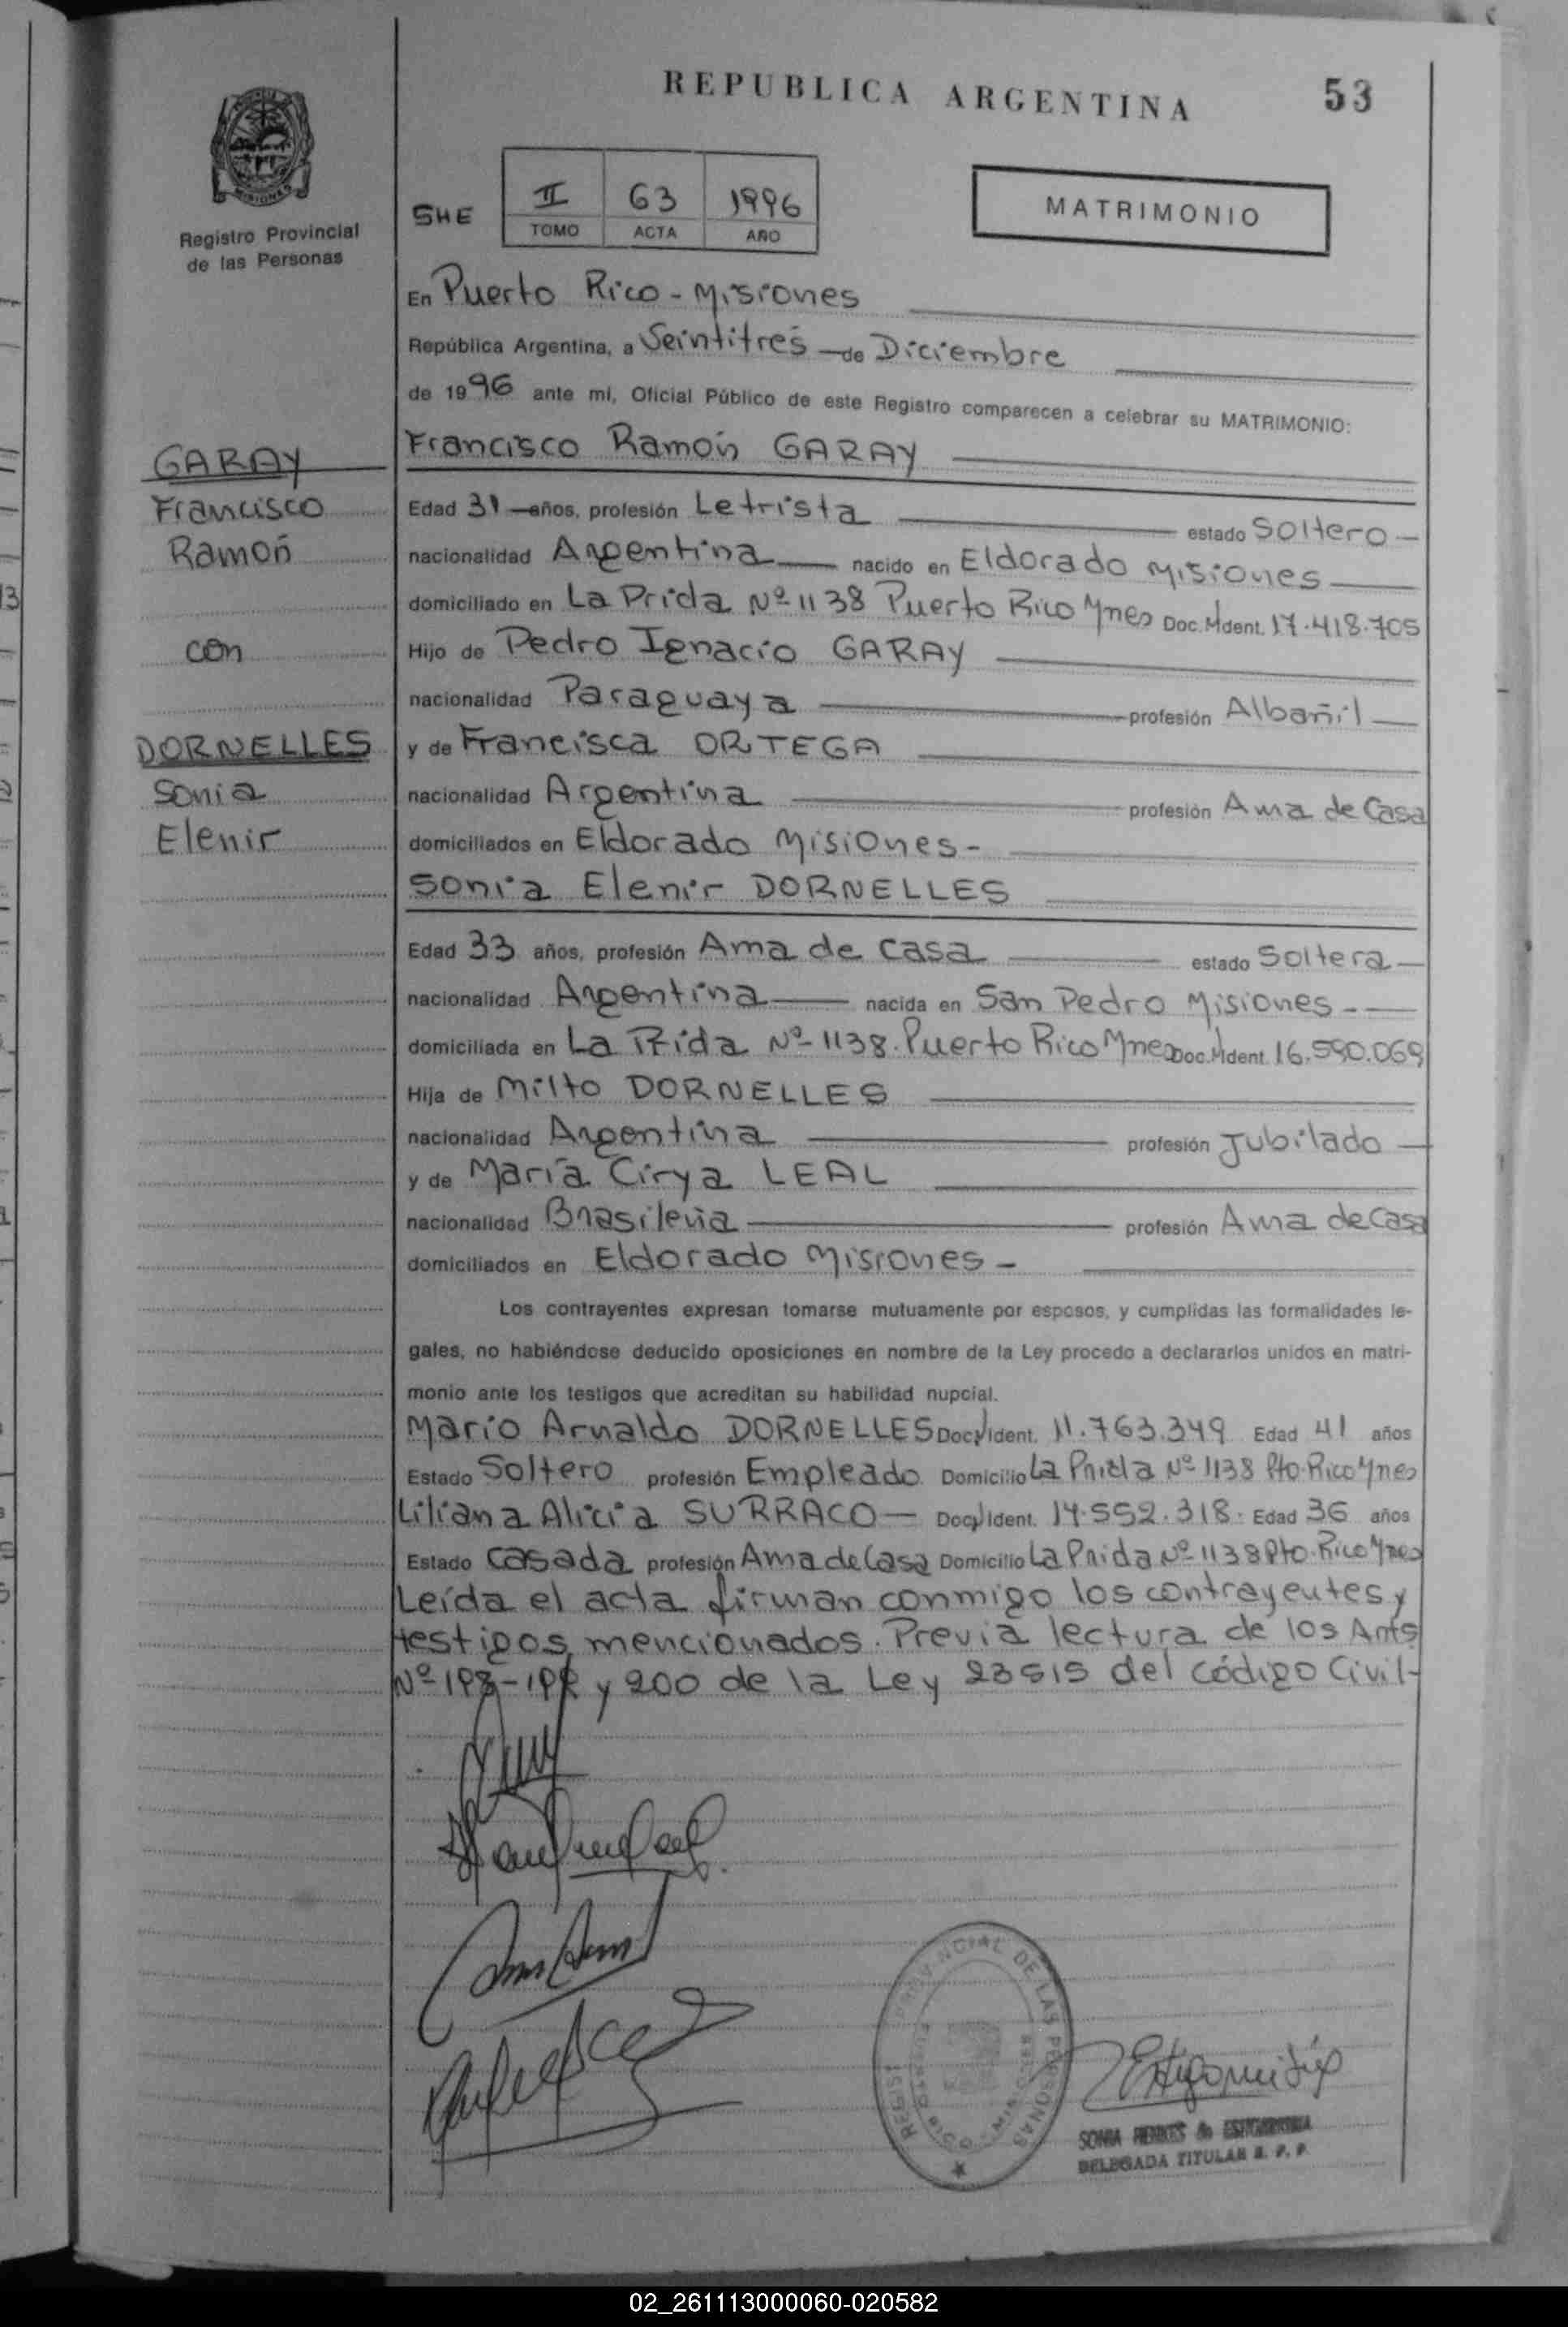 REPUBLICA ARGENTINA
53
MISIONES
Registro Provincial
de las Personas
SHE
II 63 1996
TOMO ACTA AÑO
MATRIMONIO
En Puerto Rico - Misiones
República Argentina, a Veintitrés de Diciembre
de 1996 ante mí, Oficial Público de este Registro comparecen a celebrar su MATRIMONIO:
GARAY
Francisco
Ramón
con
DORNELLES
Sonia
Elenir
Francisco Ramón GARAY
Edad 31 años, profesión Letrista estado Soltero
nacionalidad Argentina nacido en Eldorado Misiones
domiciliado en La Prida Nº 1138 Puerto Rico Mnes Doc. Ident. 17.418.705
Hijo de Pedro Ignacio GARAY
nacionalidad Paraguaya profesión Albañil
y de Francisca ORTEGA
nacionalidad Argentina profesión Ama de Casa
domiciliados en Eldorado Misiones-
Sonia Elenir DORNELLES
Edad 33 años, profesión Ama de casa estado Soltera
nacionalidad Argentina nacida en San Pedro Misiones
domiciliada en La Prida Nº 1138. Puerto Rico Mnes Doc. Ident. 16.590.069
Hija de Milto DORNELLES
nacionalidad Argentina profesión Jubilado
y de María Cirya LEAL
nacionalidad Brasileña profesión Ama de Casa
domiciliados en Eldorado Misiones-
Los contrayentes expresan tomarse mutuamente por esposos, y cumplidas las formalidades le-
gales, no habiéndose deducido oposiciones en nombre de la Ley procedo a declararlos unidos en matri-
monio ante los testigos que acreditan su habilidad nupcial.
Mario Arnaldo DORNELLES Doc. Ident. 11.763.349 Edad 41 años
Estado Soltero profesión Empleado Domicilio La Prida Nº 1138 Pto. Rico Mnes
Liliana Alicia SURRACO Doc. Ident. 14.552.318. Edad 36 años
Estado Casada profesión Ama de Casa Domicilio La Prida Nº 1138 Pto. Rico Mnes
Leída el acta firman conmigo los contrayentes y
testigos mencionados. Previa lectura de los Arts
Nº 198-199 y 200 de la Ley 23515 del código Civil-
REGISTRO PROVINCIAL DE LAS PERSONAS
SONIA
DELEGADA TITULAR R. P. P.
02_261113000060-020582